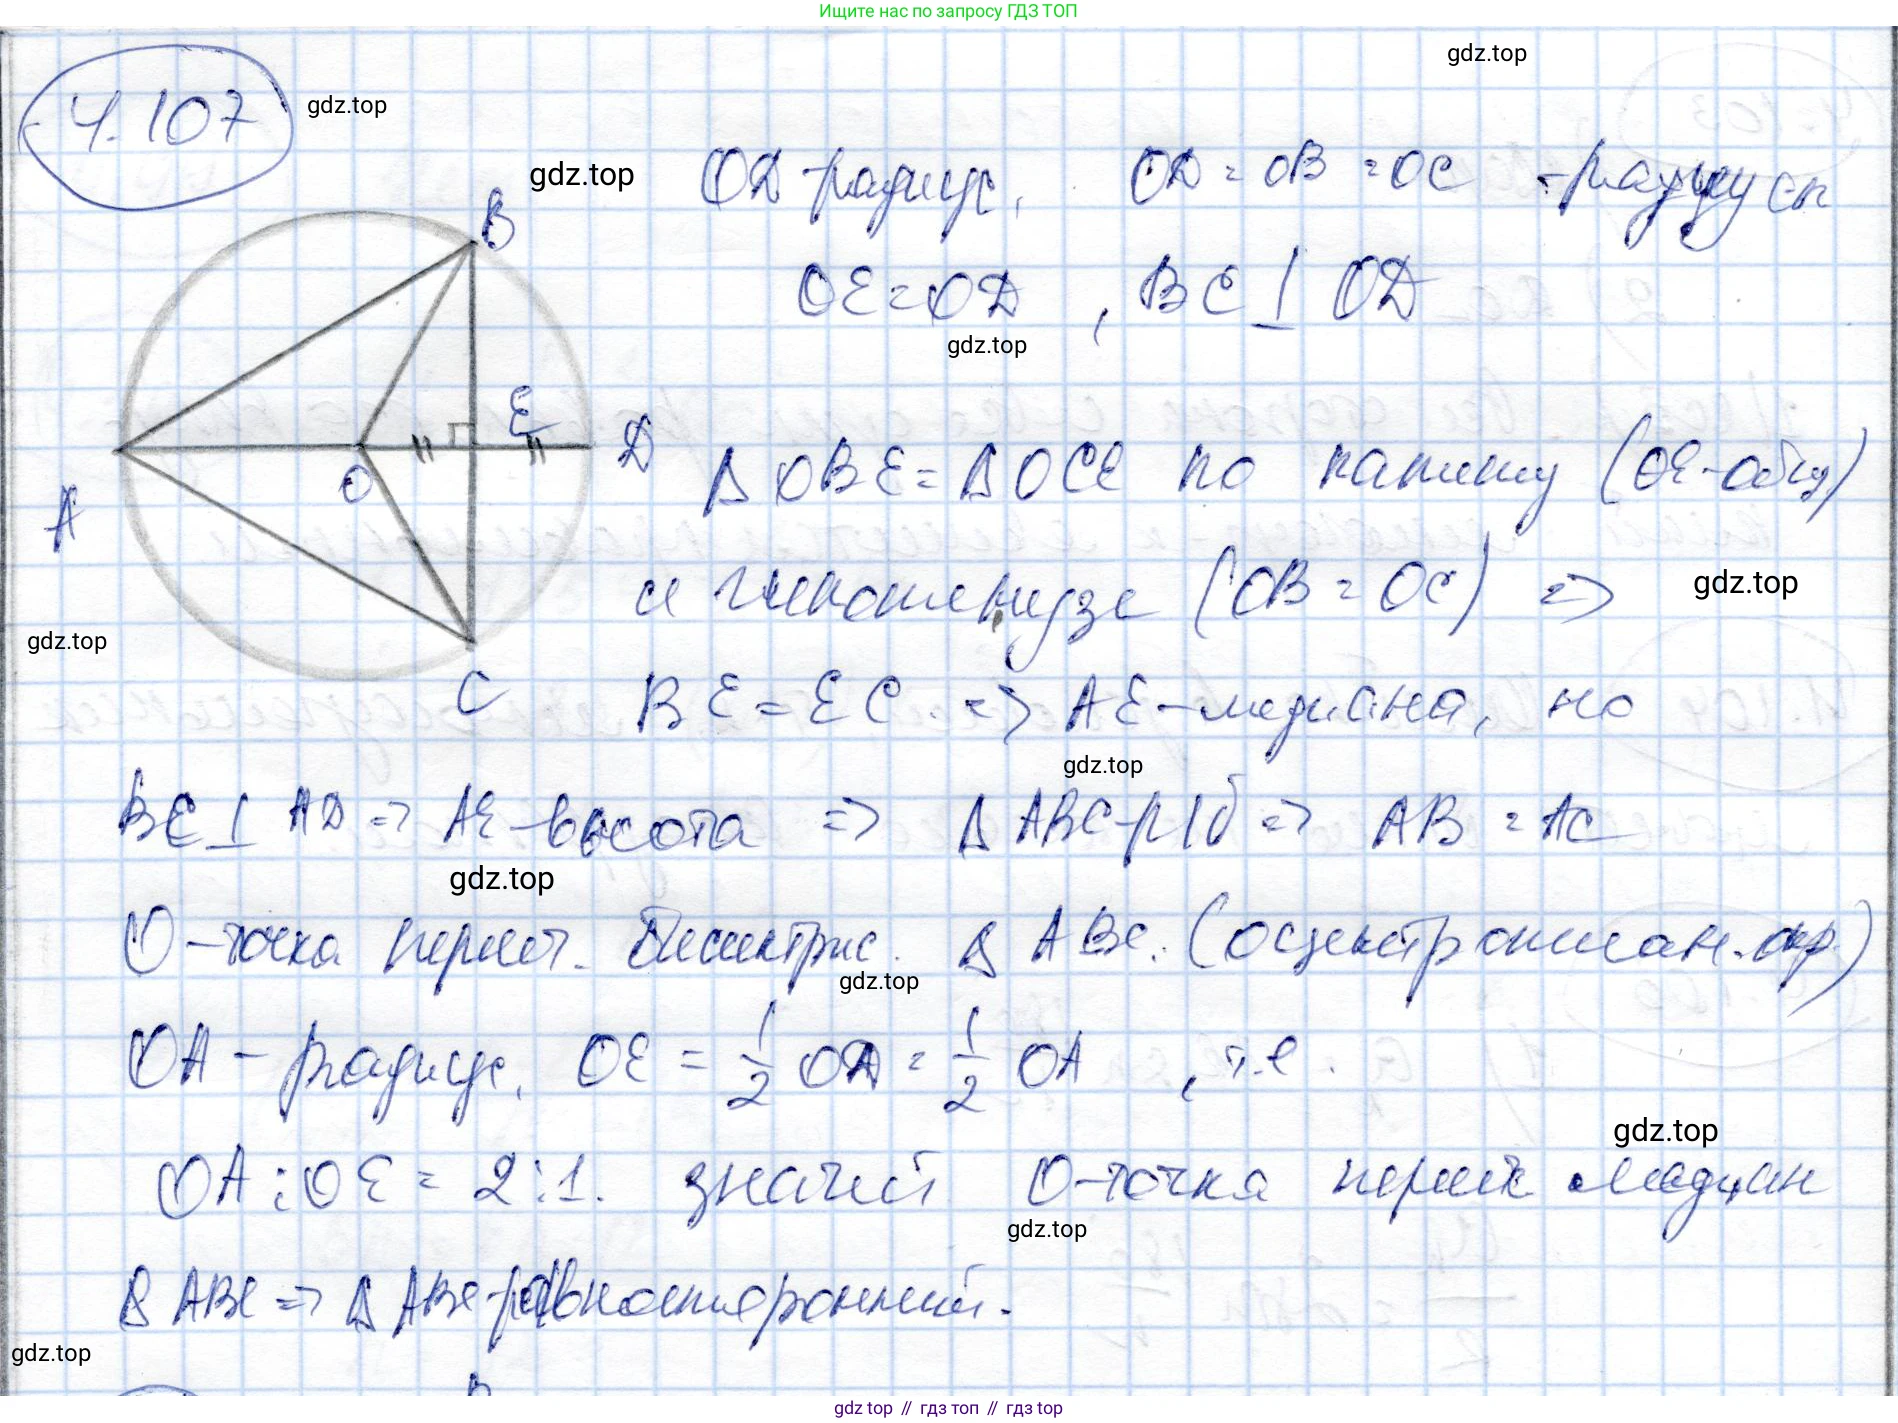 Ищите нас по запросу ГДЗ ТОП
gdz.top
4.107
gdz.top
gdz.top
OD-радиус, OD = OB = OC - радиусы
OE = OD, BC ⊥ OD
gdz.top
B
E
D
O
A
C
Δ OBE = Δ OCE по катету (OE-общ)
и гипотенузе (OB = OC) =>
gdz.top
gdz.top
BE = EC. => AE-медиана, но
gdz.top
BE ⊥ AD => AE-высота => Δ ABC-р/б => AB = AC
gdz.top
O-точка перест. биссектрис. Δ ABC. (O центр описан. окр)
gdz.top
OA - радиус, OE = 1/2 OD = 1/2 OA, т.е.
gdz.top
OA : OE = 2:1. значит O-точка перест медиан
gdz.top
Δ ABC => Δ ABC-равносторонний.
gdz.top
B
gdz top // гдз топ // gdz top